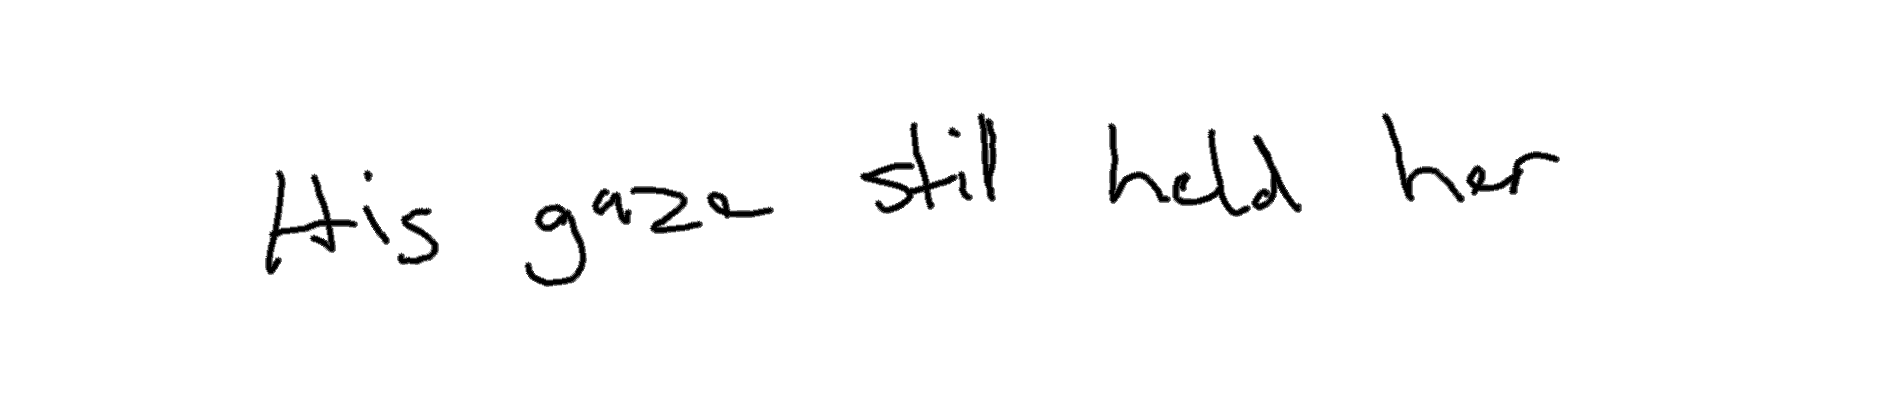 His gaze still held her